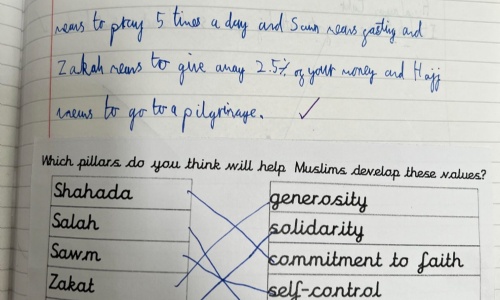 means to pray 5 times a day and Sawm means fasting and
Zakah means to give away 2.5% of your money and Hajj
means to go to a pilgrimage.
Which pillars do you think will help Muslims develop these values?
Shahada
Salah
Sawm
Zakat
generosity
solidarity
commitment to faith
self-control